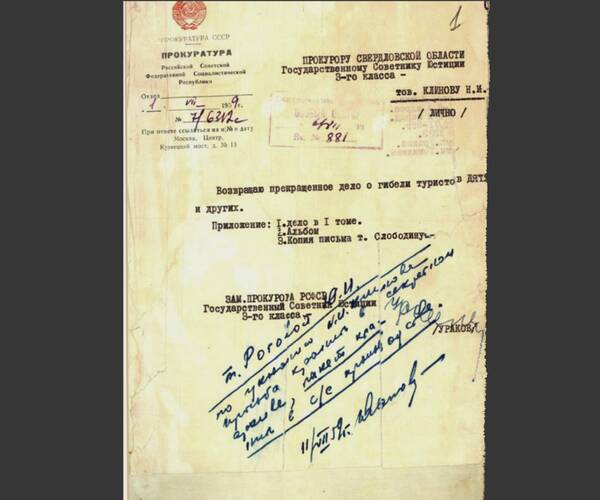 1
ПРОКУРАТУРА СССР
ПРОКУРАТУРА
Российской Советской
Федеративной Социалистической
Республики
Отдел
1 VII 1959г.
№
При ответе ссылаться на №№ и дату
Москва, Центр,
Кузнецкий мост, д. № 13
ПРОКУРОРУ СВЕРДЛОВСКОЙ ОБЛАСТИ
Государственному Советнику Юстиции
3-го класса -
тов. КЛИНОВУ Н.И.
/ ЛИЧНО /
Вх. № 881
Возвращаю прекращенное дело о гибели туристов ДЯТ
и других.
Приложение: 1.дело в I томе.
2.Альбом
3.Копия письма т. Слободину-
ЗАМ.ПРОКУРОРА РСФСР
Государственный Советник Юстиции
3-го класса-
/УРАКОВ/
т.
по указанию Н.И. Клинова
просьба хранить в секретном
архиве, пакет
в с/с производстве.
11/VII 59г. Иванов